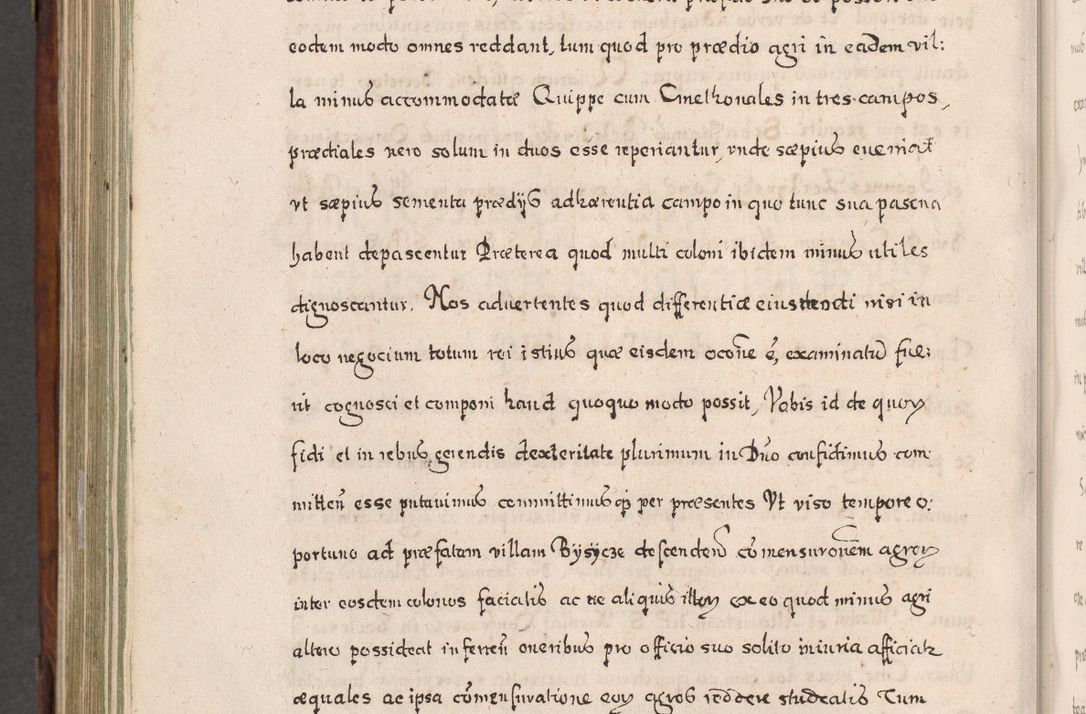 eodem modo omnes reddant, tum quod pro prædio agri in eadem vil:
la minus accommodatæ Quippe cum Cmethonales in tres campos,
prædiales vero solum in duos esse reperiantur, vnde sæpius eueniat
vt sæpius sementa prædijs adhærentia campo in quo tunc sua pascua
habent depascentur Præterea quod multi coloni ibidem minus utiles
dignoscantur. Nos aduertentes quod differentiæ eius nisi in
loco negocium totum rei istius quæ eisdem ocōne ē, examinatū fue:
rit cognosci et componi haud quoquo modo possit, Vobis id de quoꝝ
fidi et in rebus gerendis dexteritate plurimum in Dño confidimus com
mitteñ esse putauimus committimusqꝫ per præsentes Vt viso tempore o:
portuno ad præfatam villam Bysycze descendeñ cōmensuroñem agroꝝ
inter eosdem colonos faciatis ac ne aliquis illoꝝ ex eo quod minus agri
altero possideat in ferreñ oneribus pro officio suo solito iniuria afficiat
æquales ac ipsa cōmensuratione eoꝝ agros reddere studeatis Tum